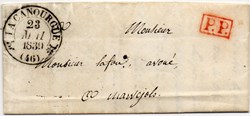 LA CANOURGUE
23
1839
(46)
P.P.
Monsieur
Monsieur lafont avoué,
a marvejols